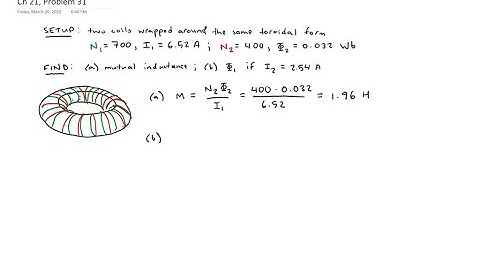 Ch 21, Problem 31
Friday, March 20, 2020 6:40 PM
SETUP: two coils wrapped around the same toroidal form
N₁ = 700, I₁ = 6.52 A ; N₂ = 400, Φ₂ = 0.032 Wb
FIND: (a) mutual inductance ; (b) Φ₁ if I₂ = 2.54 A
(a) M = N₂Φ₂ / I₁ = 400 · 0.032 / 6.52 = 1.96 H
(b)